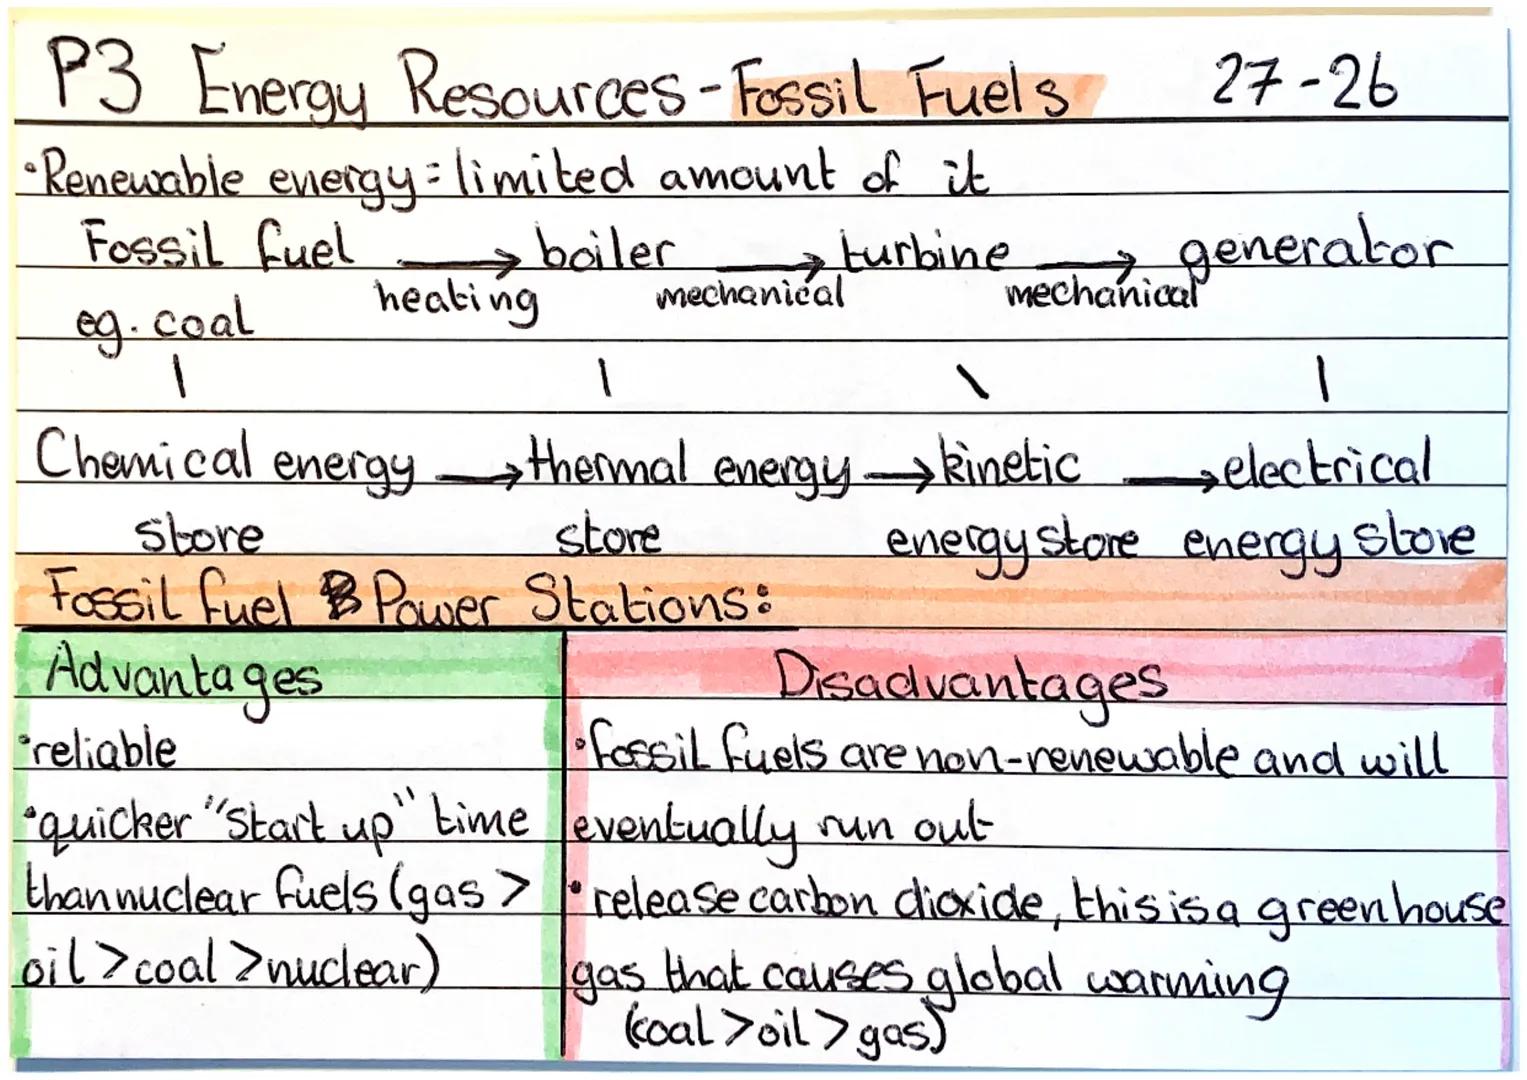 P3 Energy Resources - Fossil Fuels 27-26
• Renewable energy = limited amount of it
Fossil fuel → boiler → turbine → generator
heating mechanical mechanical
eg. coal
Chemical energy → thermal energy → kinetic → electrical
store store energy store energy store
Fossil fuel Power Stations:
Advantages
• reliable
• quicker "start up" time
than nuclear fuels (gas >
oil > coal > nuclear)
Disadvantages
• fossil fuels are non-renewable and will
eventually run out
• release carbon dioxide, this is a greenhouse
gas that causes global warming
(coal > oil > gas)